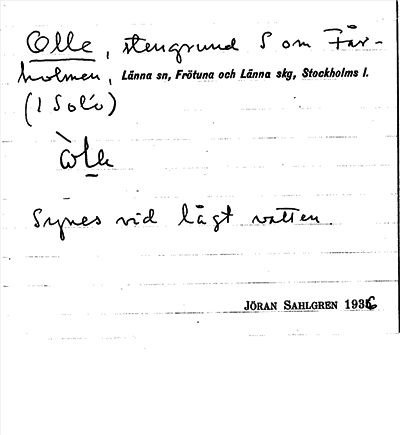 Olle, stengrund S om Får-
holmen, Länna sn, Frötuna och Länna skg, Stockholms l.
(I Solö)
òlle
Synes vid lågt vatten.
JÖRAN SAHLGREN 1936